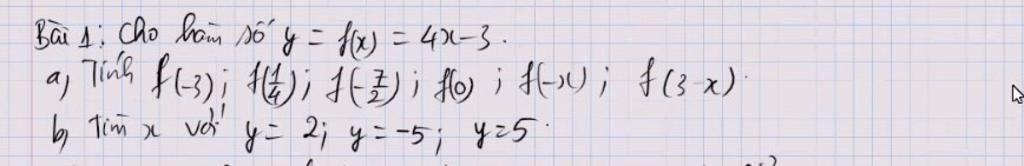 Bài 1: Cho hàm số y = f(x) = 4x-3.
a, Tính f(-3); f(1/4); f(-7/2); f(0); f(-x); f(3-x).
b, Tìm x với y = 2; y = -5; y = 5.